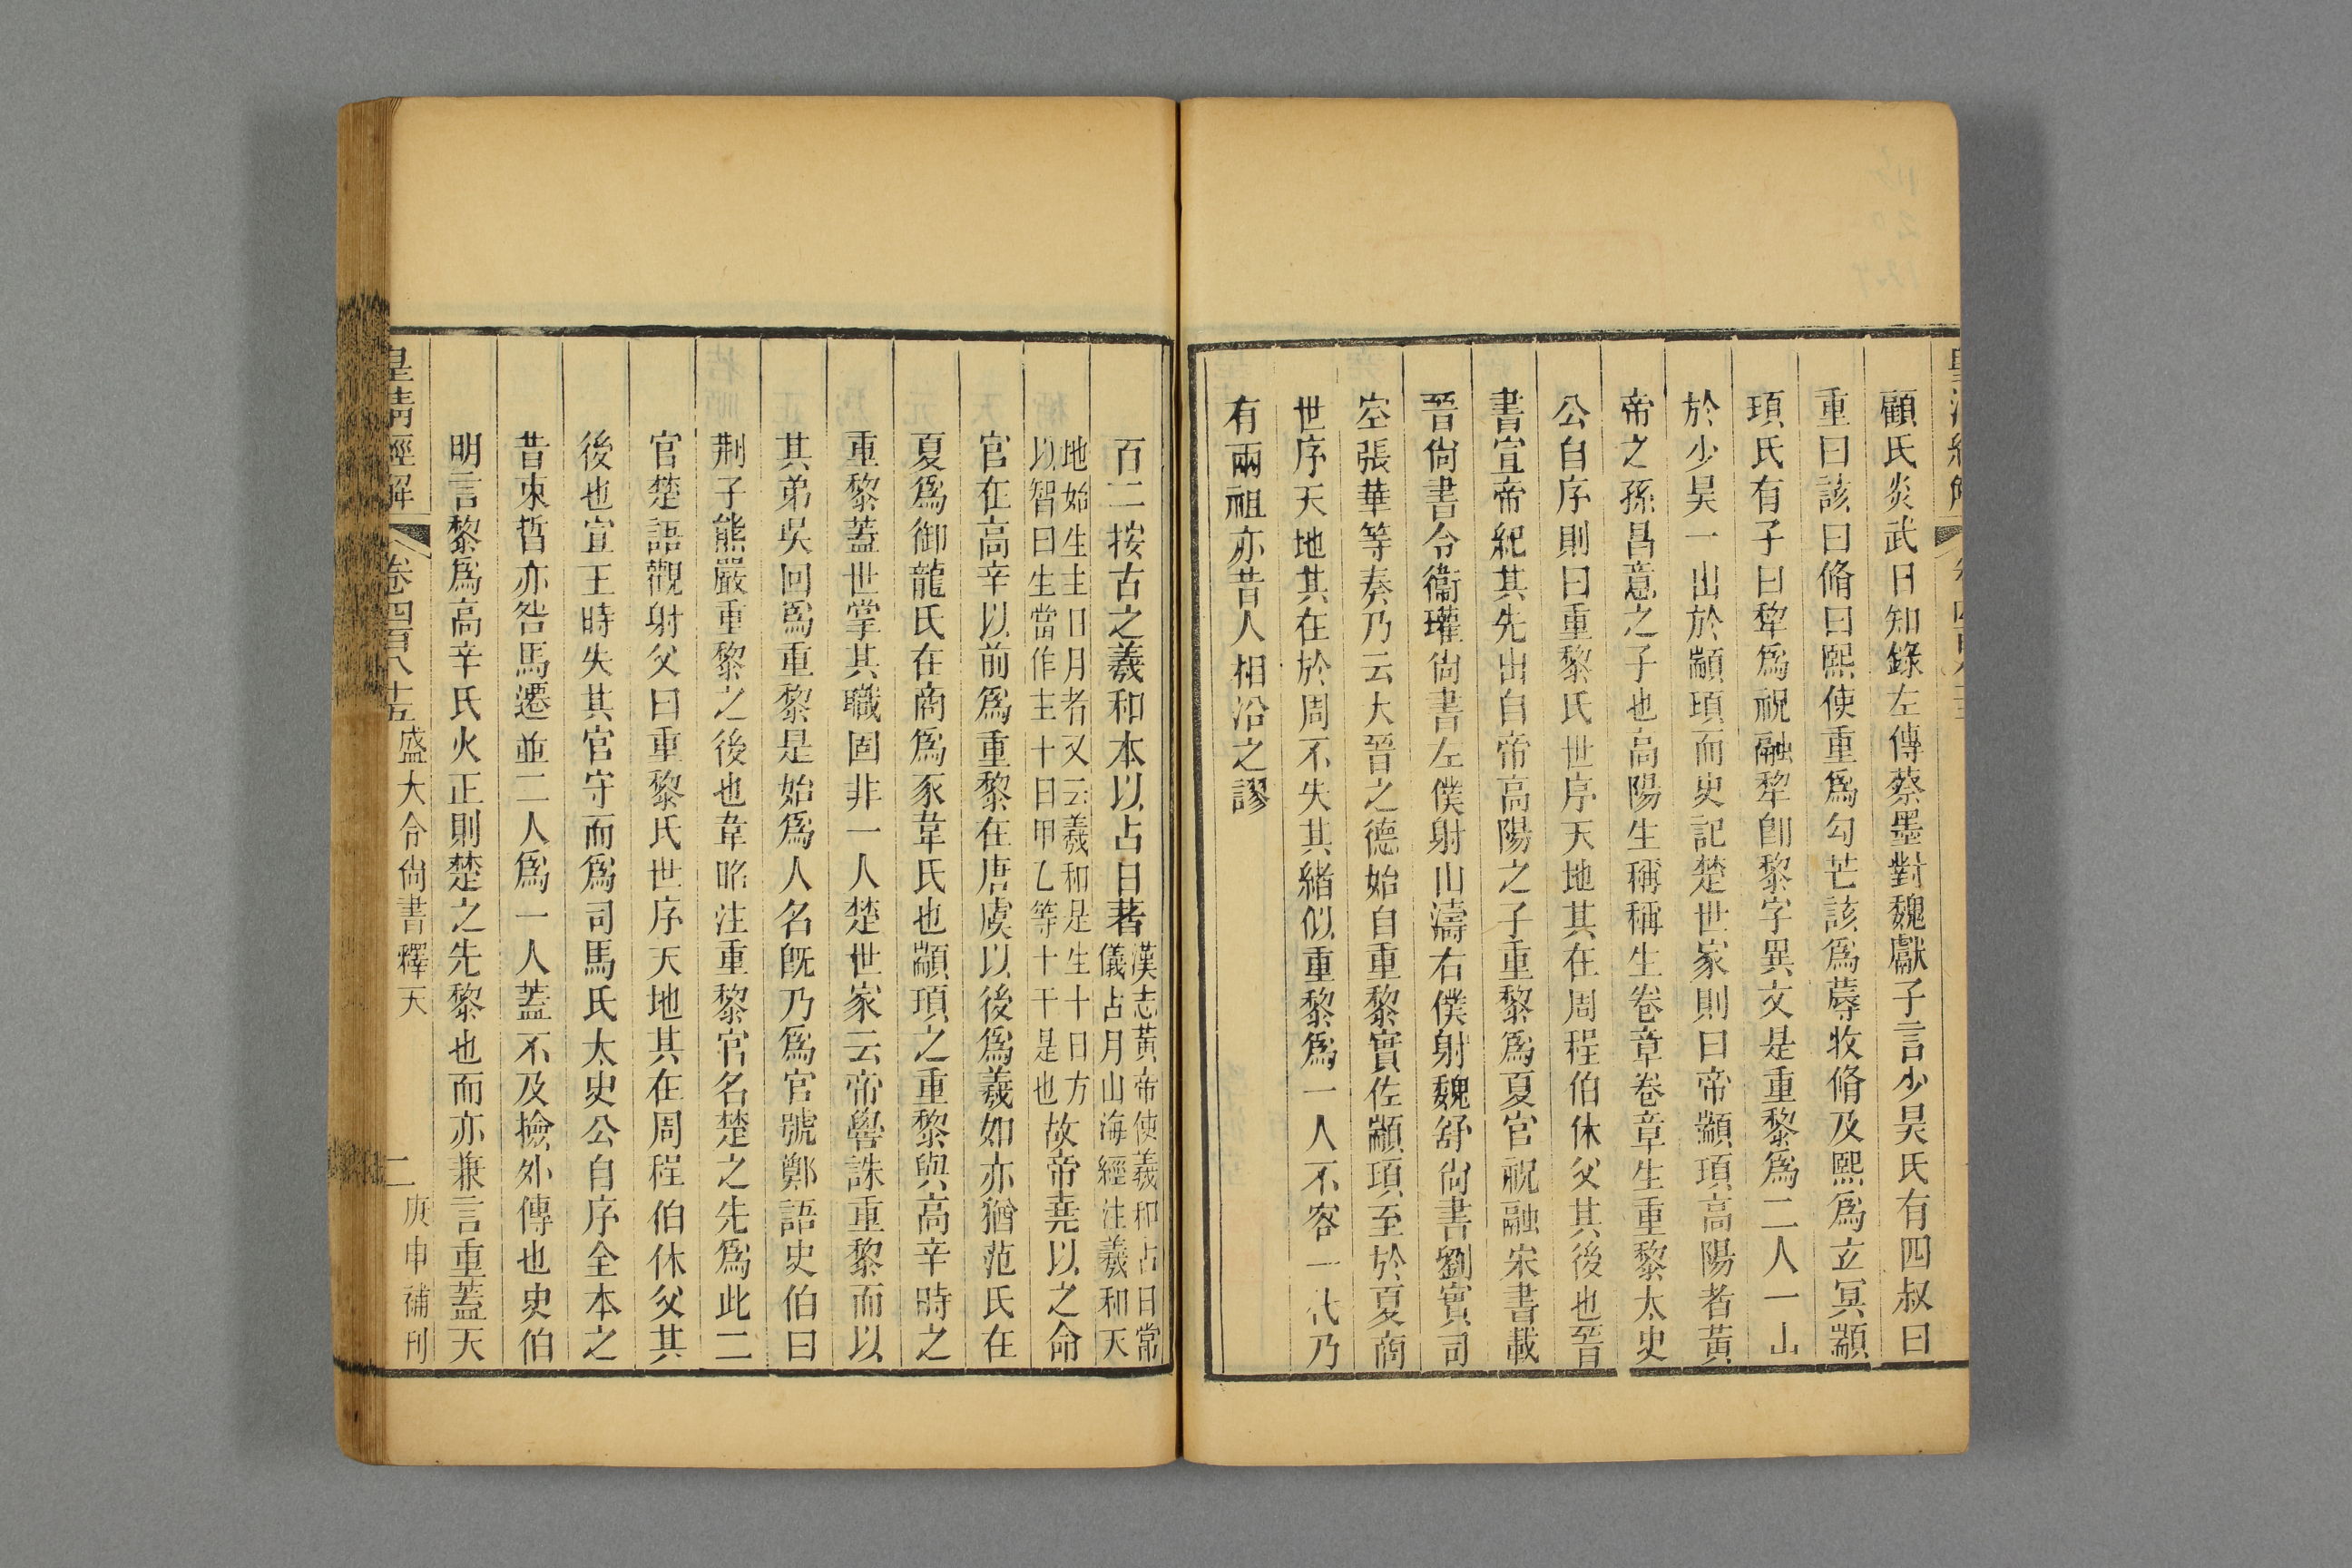 顧氏炎武日知錄左傳蔡墨對魏獻子言少昊氏有四叔曰
重曰該曰脩曰熙使重爲勾芒該爲蓐收脩及熙爲玄冥顓
頊氏有子曰犂爲祝融犂卽黎字異文是重黎爲二人一出
於少昊一出於顓頊而史記楚世家則曰帝顓頊高陽者黃
帝之孫昌意之子也高陽生稱稱生卷章卷章生重黎太史
公自序則曰重黎氏世序天地其在周程伯休父其後也晉
書宣帝紀其先出自帝高陽之子重黎爲夏官祝融宋書載
晉尙書令衞瓘尙書左僕射山濤右僕射魏舒尙書劉寔司
空張華等奏乃云大晉之德始自重黎實佐顓頊至於夏商
世序天地其在於周不失其緖似重黎爲一人不容一代乃
有兩祖亦昔人相沿之謬
百二按古之羲和本以占日著漢志黃帝使羲和占日常
儀占月山海經注羲和天
地始生主日月者又云羲和是生十日方
以智曰生當作主十日甲乙等十干是也故帝堯以之命
官在高辛以前爲重黎在唐虞以後爲羲如亦猶范氏在
夏爲御龍氏在商爲豕韋氏也顓頊之重黎與高辛時之
重黎蓋世掌其職固非一人楚世家云帝嚳誅重黎而以
其弟吳回爲重黎是始爲人名旣乃爲官號鄭語史伯曰
荆子熊嚴重黎之後也韋昭注重黎官名楚之先爲此二
官楚語觀射父曰重黎氏世序天地其在周程伯休父其
後也宣王時失其官守而爲司馬氏太史公自序全本之
昔束晳亦咎馬遷並二人爲一人蓋不及撿外傳也史伯
明言黎爲高辛氏火正則楚之先黎也而亦兼言重蓋天
皇淸經解 卷四百八十五 盛大令尙書釋天 二 庚申補刊